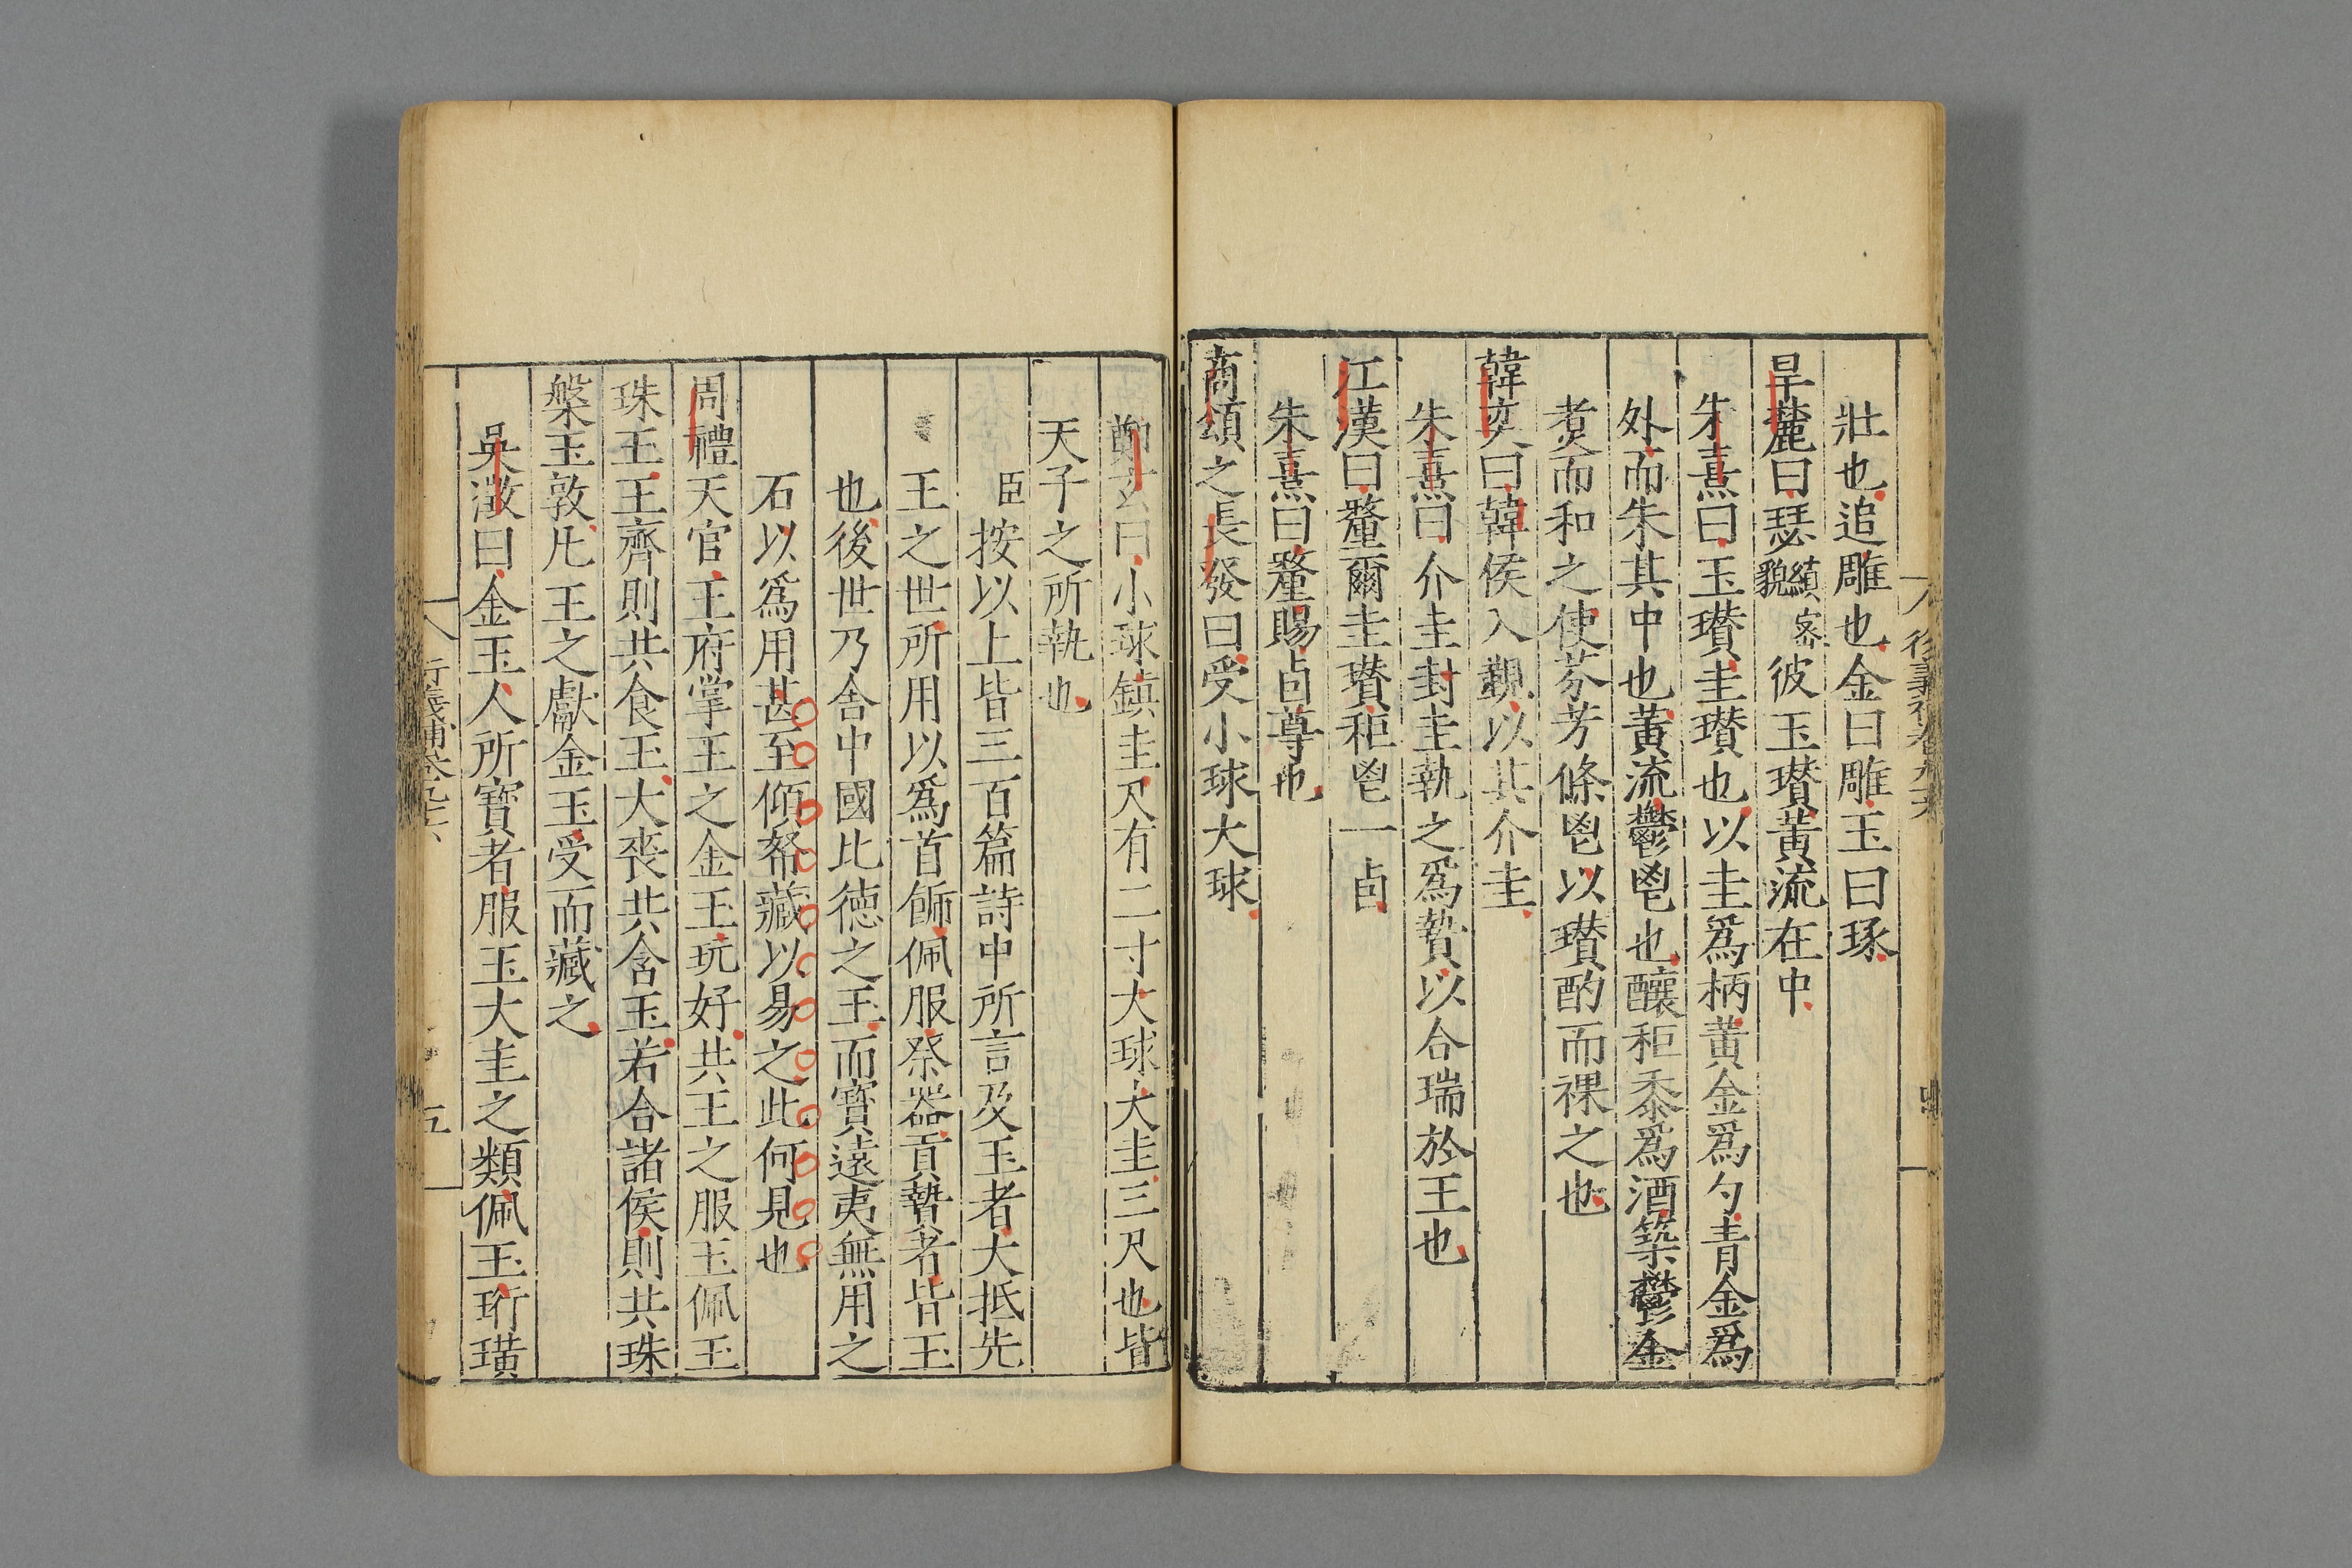 壯也追雕也金曰雕玉曰琢
旱麓曰瑟縝密貌彼玉瓚黃流在中
朱熹曰玉瓚圭瓚也以圭爲柄黃金爲勺青金爲
外而朱其中也黃流鬱鬯也釀秬黍爲酒築鬱金
煑而和之使芬芳條鬯以瓚酌而祼之也
韓奕曰韓侯入覲以其介圭
朱熹曰介圭封圭執之爲贄以合瑞於王也
江漢曰釐爾圭瓚秬鬯一卣
朱熹曰釐賜卣尊也
商頌之長發曰受小球大球
鄭玄曰小球鎮圭尺有二寸大球大圭三尺也皆
天子之所執也
臣按以上皆三百篇詩中所言及玉者大抵先
王之世所用以爲首飾佩服祭器貢贄者皆玉
也後世乃舍中國比德之玉而寳遠夷無用之
石以爲用甚至傾帑藏以易之此何見也
周禮天官玉府掌王之金玉玩好共王之服玉佩玉
珠玉王齊則共食玉大喪共含玉若合諸侯則共珠
槃玉敦凡王之獻金玉受而藏之
吳澂曰金玉人所寳者服玉大圭之類佩玉珩璜
五